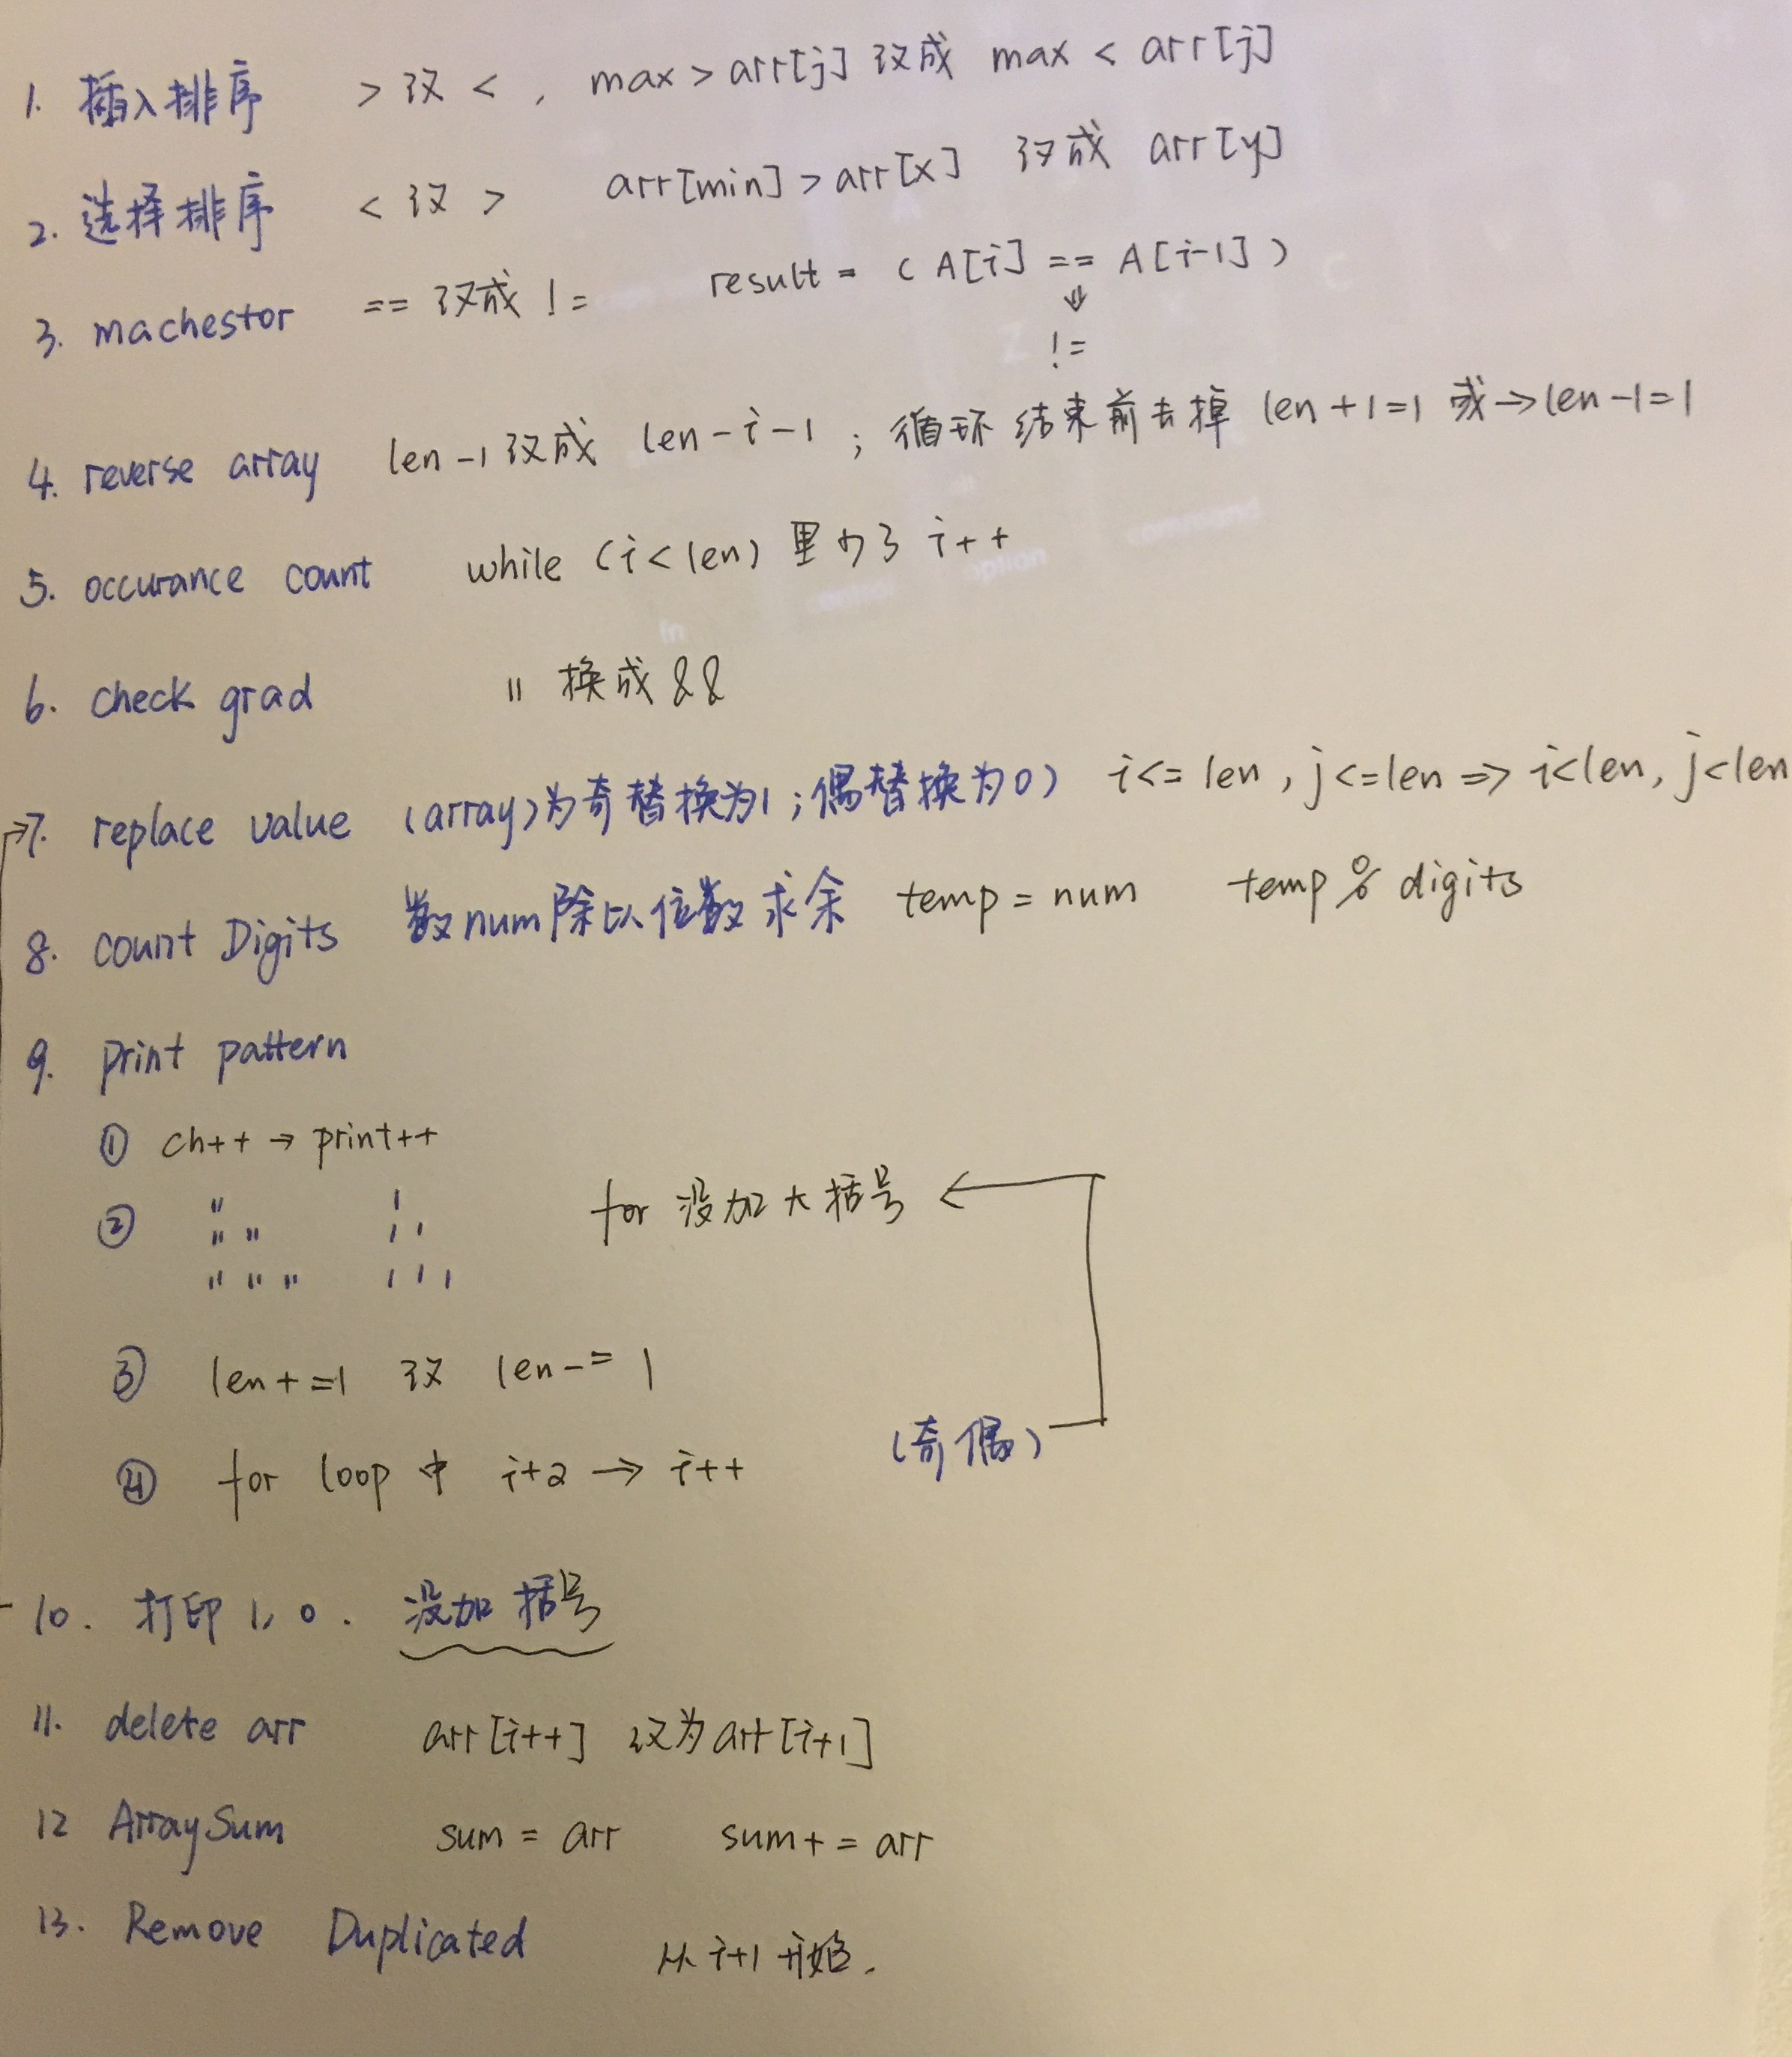 1. 插入排序 > 改 < , max > arr[j] 改成 max < arr[j]
2. 选择排序 < 改 > arr[min] > arr[x] 改成 arr[y]
3. machestor == 改成 != result = ( A[i] == A[i-1] )
⇓
!=
4. reverse array len-1 改成 len-i-1 ; 循环结束前去掉 len+1=1 或→len-1=1
5. occurance count while (i<len) 里少了 i++
6. check grad || 换成 &&
→7. replace value (array)为奇替换为1;偶替换为0) i<=len , j<=len => i<len, j<len
8. count Digits 数num除以位数求余 temp = num temp % digits
9. print pattern
① ch++ → print++
② " 1
" " 1 1 for 没加大括号 ←
" " " 1 1 1
③ len+=1 改 len-=1
④ for loop 中 i+2 → i++ (奇偶)
10. 打印 1, 0. 没加括号
11. delete arr arr[i++] 改为 arr[i+1]
12 ArraySum sum = arr sum+ = arr
13. Remove Duplicated 从 i+1 开始.